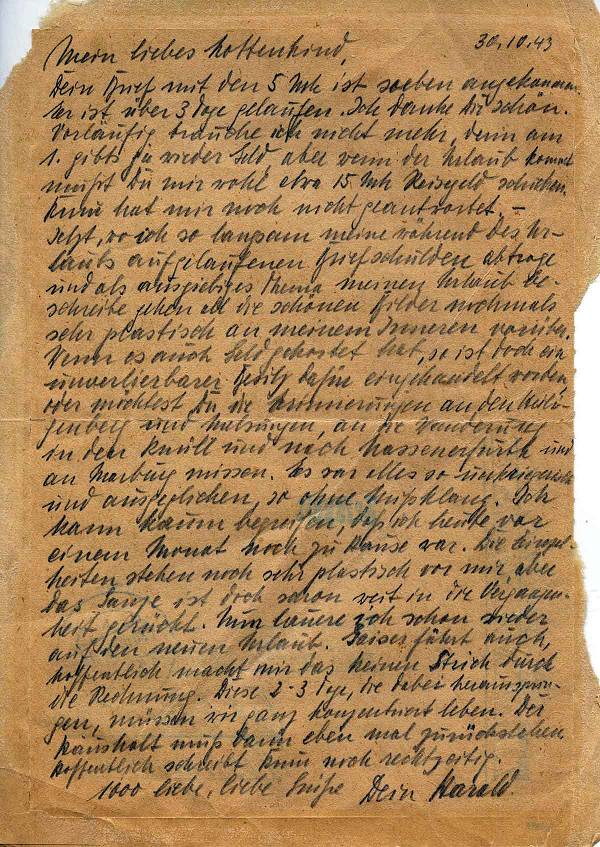 30.10.43
Mein liebes Lottenkind,
Dein Brief mit den 5 Mk ist soeben angekommen
Er ist über 3 Tage gelaufen. Ich danke Dir schön.
Vorläufig brauche ich nicht mehr, denn am
1. gibts ja wieder Geld, aber wenn der Urlaub kommt
mußt Du mir wohl etwa 15 Mk Reisegeld schicken.
hat mir noch nicht geantwortet. –
Jetzt, wo ich so langsam meine während des Ur-
laubs aufgelaufenen Briefschulden abtrage
und als ausgiebiges Thema meinen Urlaub be-
schreibe gehen all die schönen Bilder nochmals
sehr plastisch an meinem Inneren vorüber.
Wenn es auch Geld gekostet hat, so ist doch ein
unverlierbarer Besitz dafür eingehandelt worden
oder möchtest Du die Erinnerungen an den Heili-
genberg und Melsungen, an die Wanderung
in den Knüll und nach Wassenerfurth und
an Marburg missen. Es war alles so unkriegerisch
und ausgeglichen, so ohne Mißklang. Ich
kann kaum begreifen, daß ich heute vor
einem Monat noch zu Hause war. Die Einzel-
heiten stehen noch sehr plastisch vor mir aber
das Ganze ist doch schon weit in die Vergangen-
heit gerückt. Nun lauere ich schon wieder
auf den neuen Urlaub. Kaiser fährt auch,
hoffentlich macht mir das keinen Strich durch
die Rechnung. Diese 2-3 Tage, die dabei heraussprin-
gen, müssen wir ganz konzentriert leben. Der
Haushalt muß dann eben mal zurückstehen.
Hoffentlich schreibt noch rechtzeitig.
1000 liebe, liebe Grüße Dein Harald.